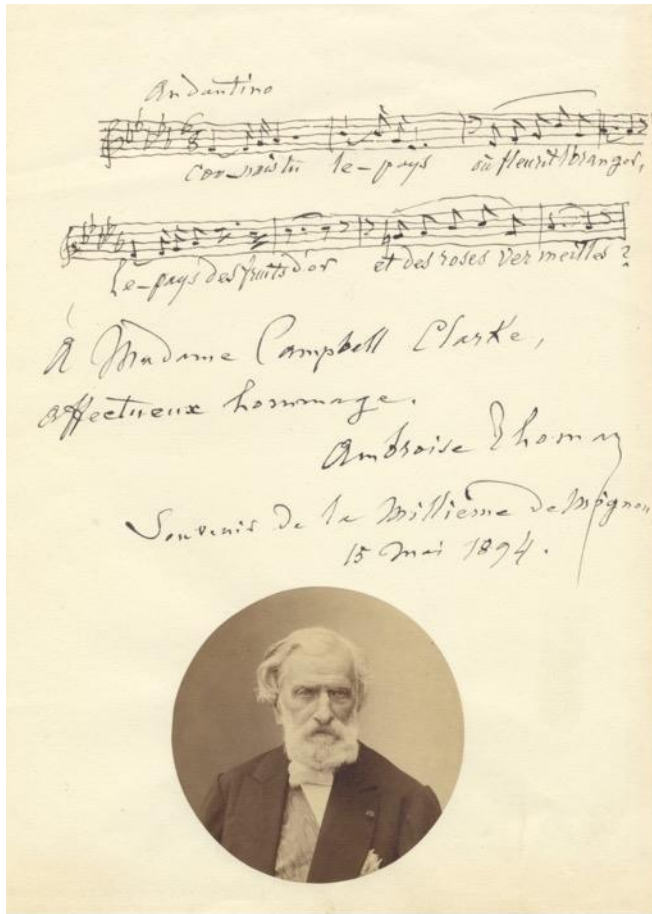 Andantino
Connais tu le-pays où fleurit l'oranger,
Le-pays des fruits d'or et des roses vermeilles ?
À Madame Campbell Clarke,
affectueux hommage.
Ambroise Thomas
Souvenir de la Millième de Mignon
15 Mai 1894.